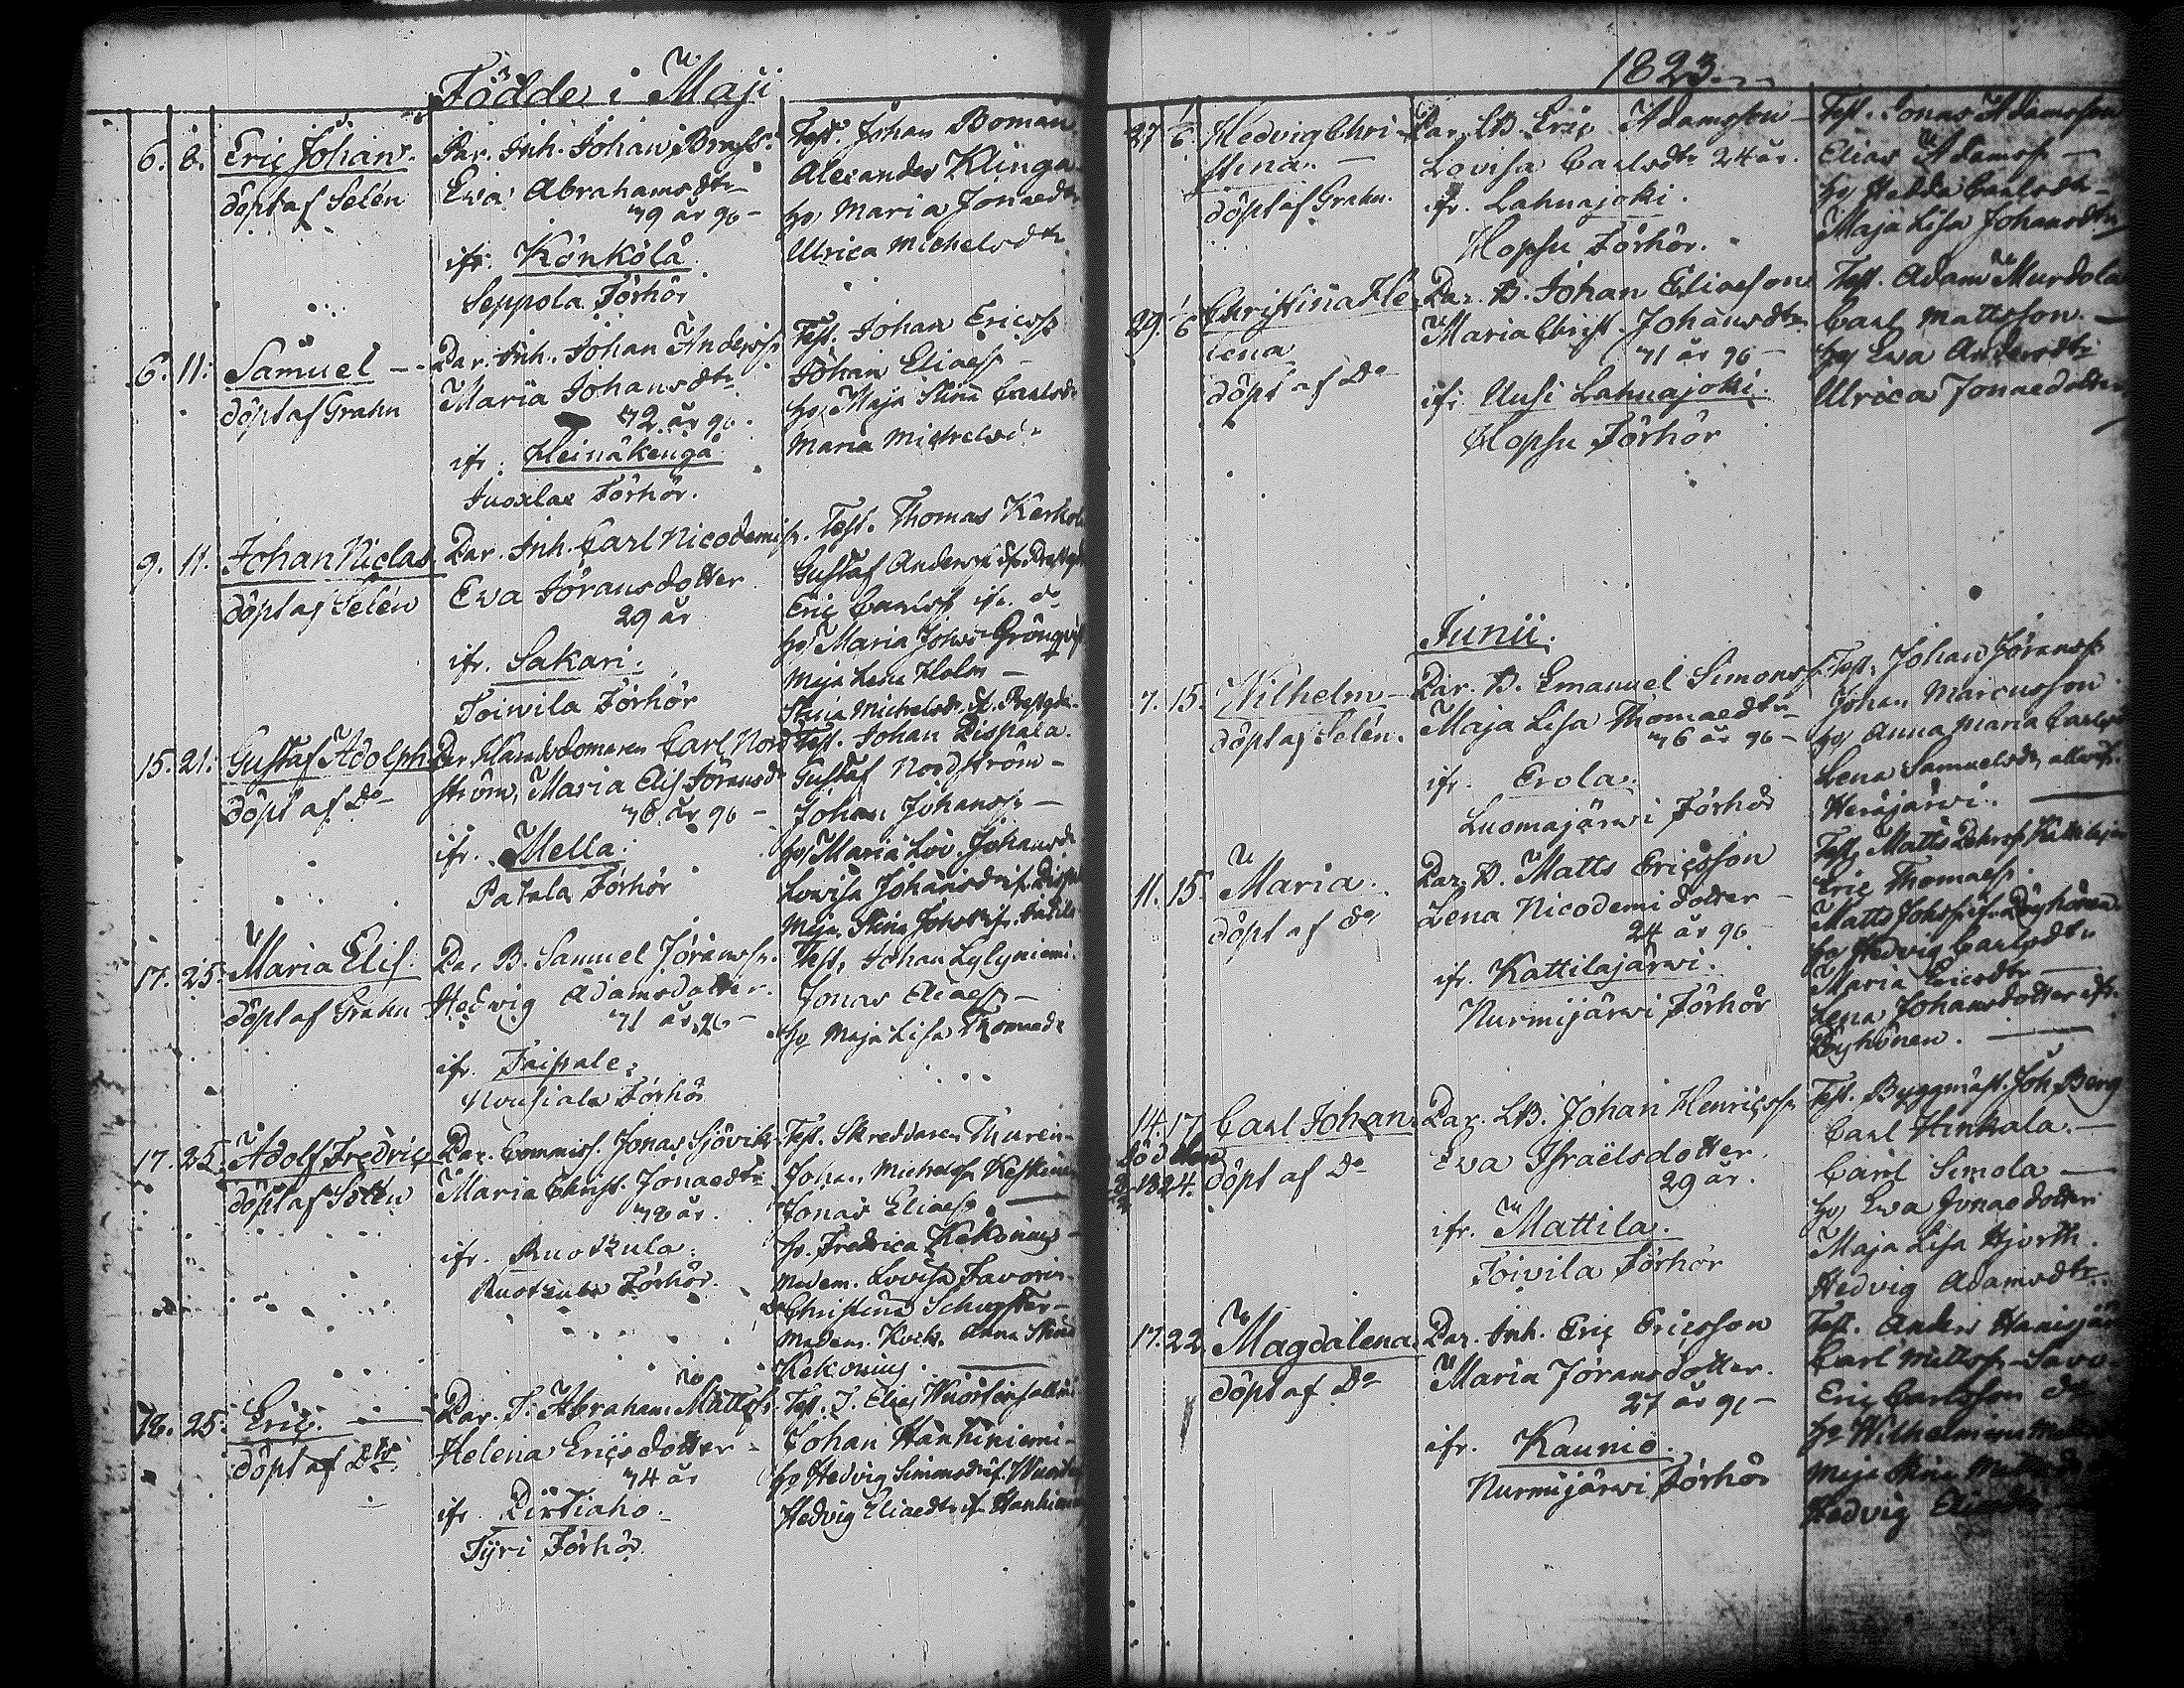 Födde i Maji
6. 8. Eric Johan.
döpt af Selén
Par. Inh. Johan
Eva Abrahamsdtr
ifr. Könkölä
Seppola Förhör
Test. Johan Boman
Alexander Klinga
Maria Jonaedtr
Ulrica Michelsdtr
6. 11. Samuel
döpt af Grahn
Par. Inh. Johan Anderss.
Maria Johansdtr
42 år
ifr. Heinäkenga
Förhör.
Test. Johan Ericss.
Johan Eliaess.
Maja Stina Carlsdr
Maria Michelsdr
9. 11. Johan Niclas
döpt af Selén
Par. Inh. Carl Nicodemiss.
Eva Göransdotter
29 år
ifr. Sakari.
Toivila Förhör
Test. Thomas
Gustaf Anderss.
Eric Carlss. ifr. do
Maria Grönqvist
Maja Lena Holm
Stina Michelsdr
15. 21. Gustaf Adolph
döpt af Do
Par. Carl Nord
ström, Maria Elis. Göransdr
ifr. Mella.
Patala Förhör
Test. Johan Rispala.
Gustaf Nordström
Johan Johanss.
Maria Lov. Johansdr
Lovisa Johansdr
Maja Stina
17. 25. Maria Elis.
döpt af Grahn
Par. B. Samuel Jöranss.
Hedvig Adamsdotter.
41 år
ifr. Taipale.
Förhör
Test. Johan Lylyniemi.
Jonas Eliaess.
Maja Lisa Thomaedr
17. 25. Adolf Fredric
döpt af Selén
Par. Commiss. Jonas Sjövik
Maria Christ. Jonaedtr
ifr. Ruotzula.
Ruotzula Förhör.
Test. Skreddaren Thuren
Johan Michelss.
Jonas Eliaess.
Fredrica Kekonius
Madem. Lovisa Favorin
Christina Schugster
Madem. Anna Stina
Kekonius.
18. 25. Eric.
döpt af
Par. T. Abraham Mattss.
Helena Ericsdotter
44 år
ifr. Pirtiaho.
Tyri Förhör.
Test. T. Elias
Johan Hanhiniemi
Hedvig Simonsdr
Hedvig Eliaedtr
1823.
27. 1/6. Hedvig Chri-
stina.
döpt af Grahn.
Par. LB. Eric Adamsson
Lovisa Carlsdtr 24 år.
ifr. Lahnajoki.
Hopsu Förhör.
Test. Jonas Adamsson
Elias Adamss.
Hedda Carlsdtr
Maja Lisa Johansdtr
29. 1/6 Christina He-
lena
döpt af Do
Par. B. Johan Eliaeson
Maria Christ. Johansdtr
41 år
ifr. Uusi Lahnajoki.
Hopsu Förhör
Test. Adam Murdola
Carl Mattsson.
Eva Andersdtr
Ulrica Jonaedotter
Junii.
7. 15. Wilhelm
döpt af Selén.
Par. B. Emanuel Simonss.
Maja Lisa Thomaedtr
ifr. Erola.
Luomajärvi Förhör
Test. Johan Jöranss.
Johan Marcusson
Anna Maria
Lena Samuelsdr
Herajärvi.
11. 15. Maria.
döpt af do
Par. B. Matts Ericsson
Lena Nicodemi dotter
24 år
ifr. Kattilajärvi.
Nurmijärvi Förhör
Test. Matts
Eric Thomaess.
Matts
Hedvig Carlsdtr
Maria Ericsdtr
Lena Johansdotter ifr.
14. 17. Carl Johan.
död den
1824. döpt af Do
Par. LB. Johan Henricss.
Eva Israëlsdotter.
29 år.
ifr. Mattila.
Toivila Förhör
Test. Byggmäst. Joh. Berg
Carl Hinkala.
Carl Simola
Eva Jonaedotter
Maja Lisa Hjorth.
Hedvig Adamsdtr
17. 22. Magdalena.
döpt af Do
Par. Inh. Eric Ericsson
Maria Jöransdotter.
27 år
ifr. Kaunio.
Nurmijärvi Förhör
Test. Anders
Carl Mattss.
Eric Carlsson do
Wilhelmina
Maja Stina
Hedvig